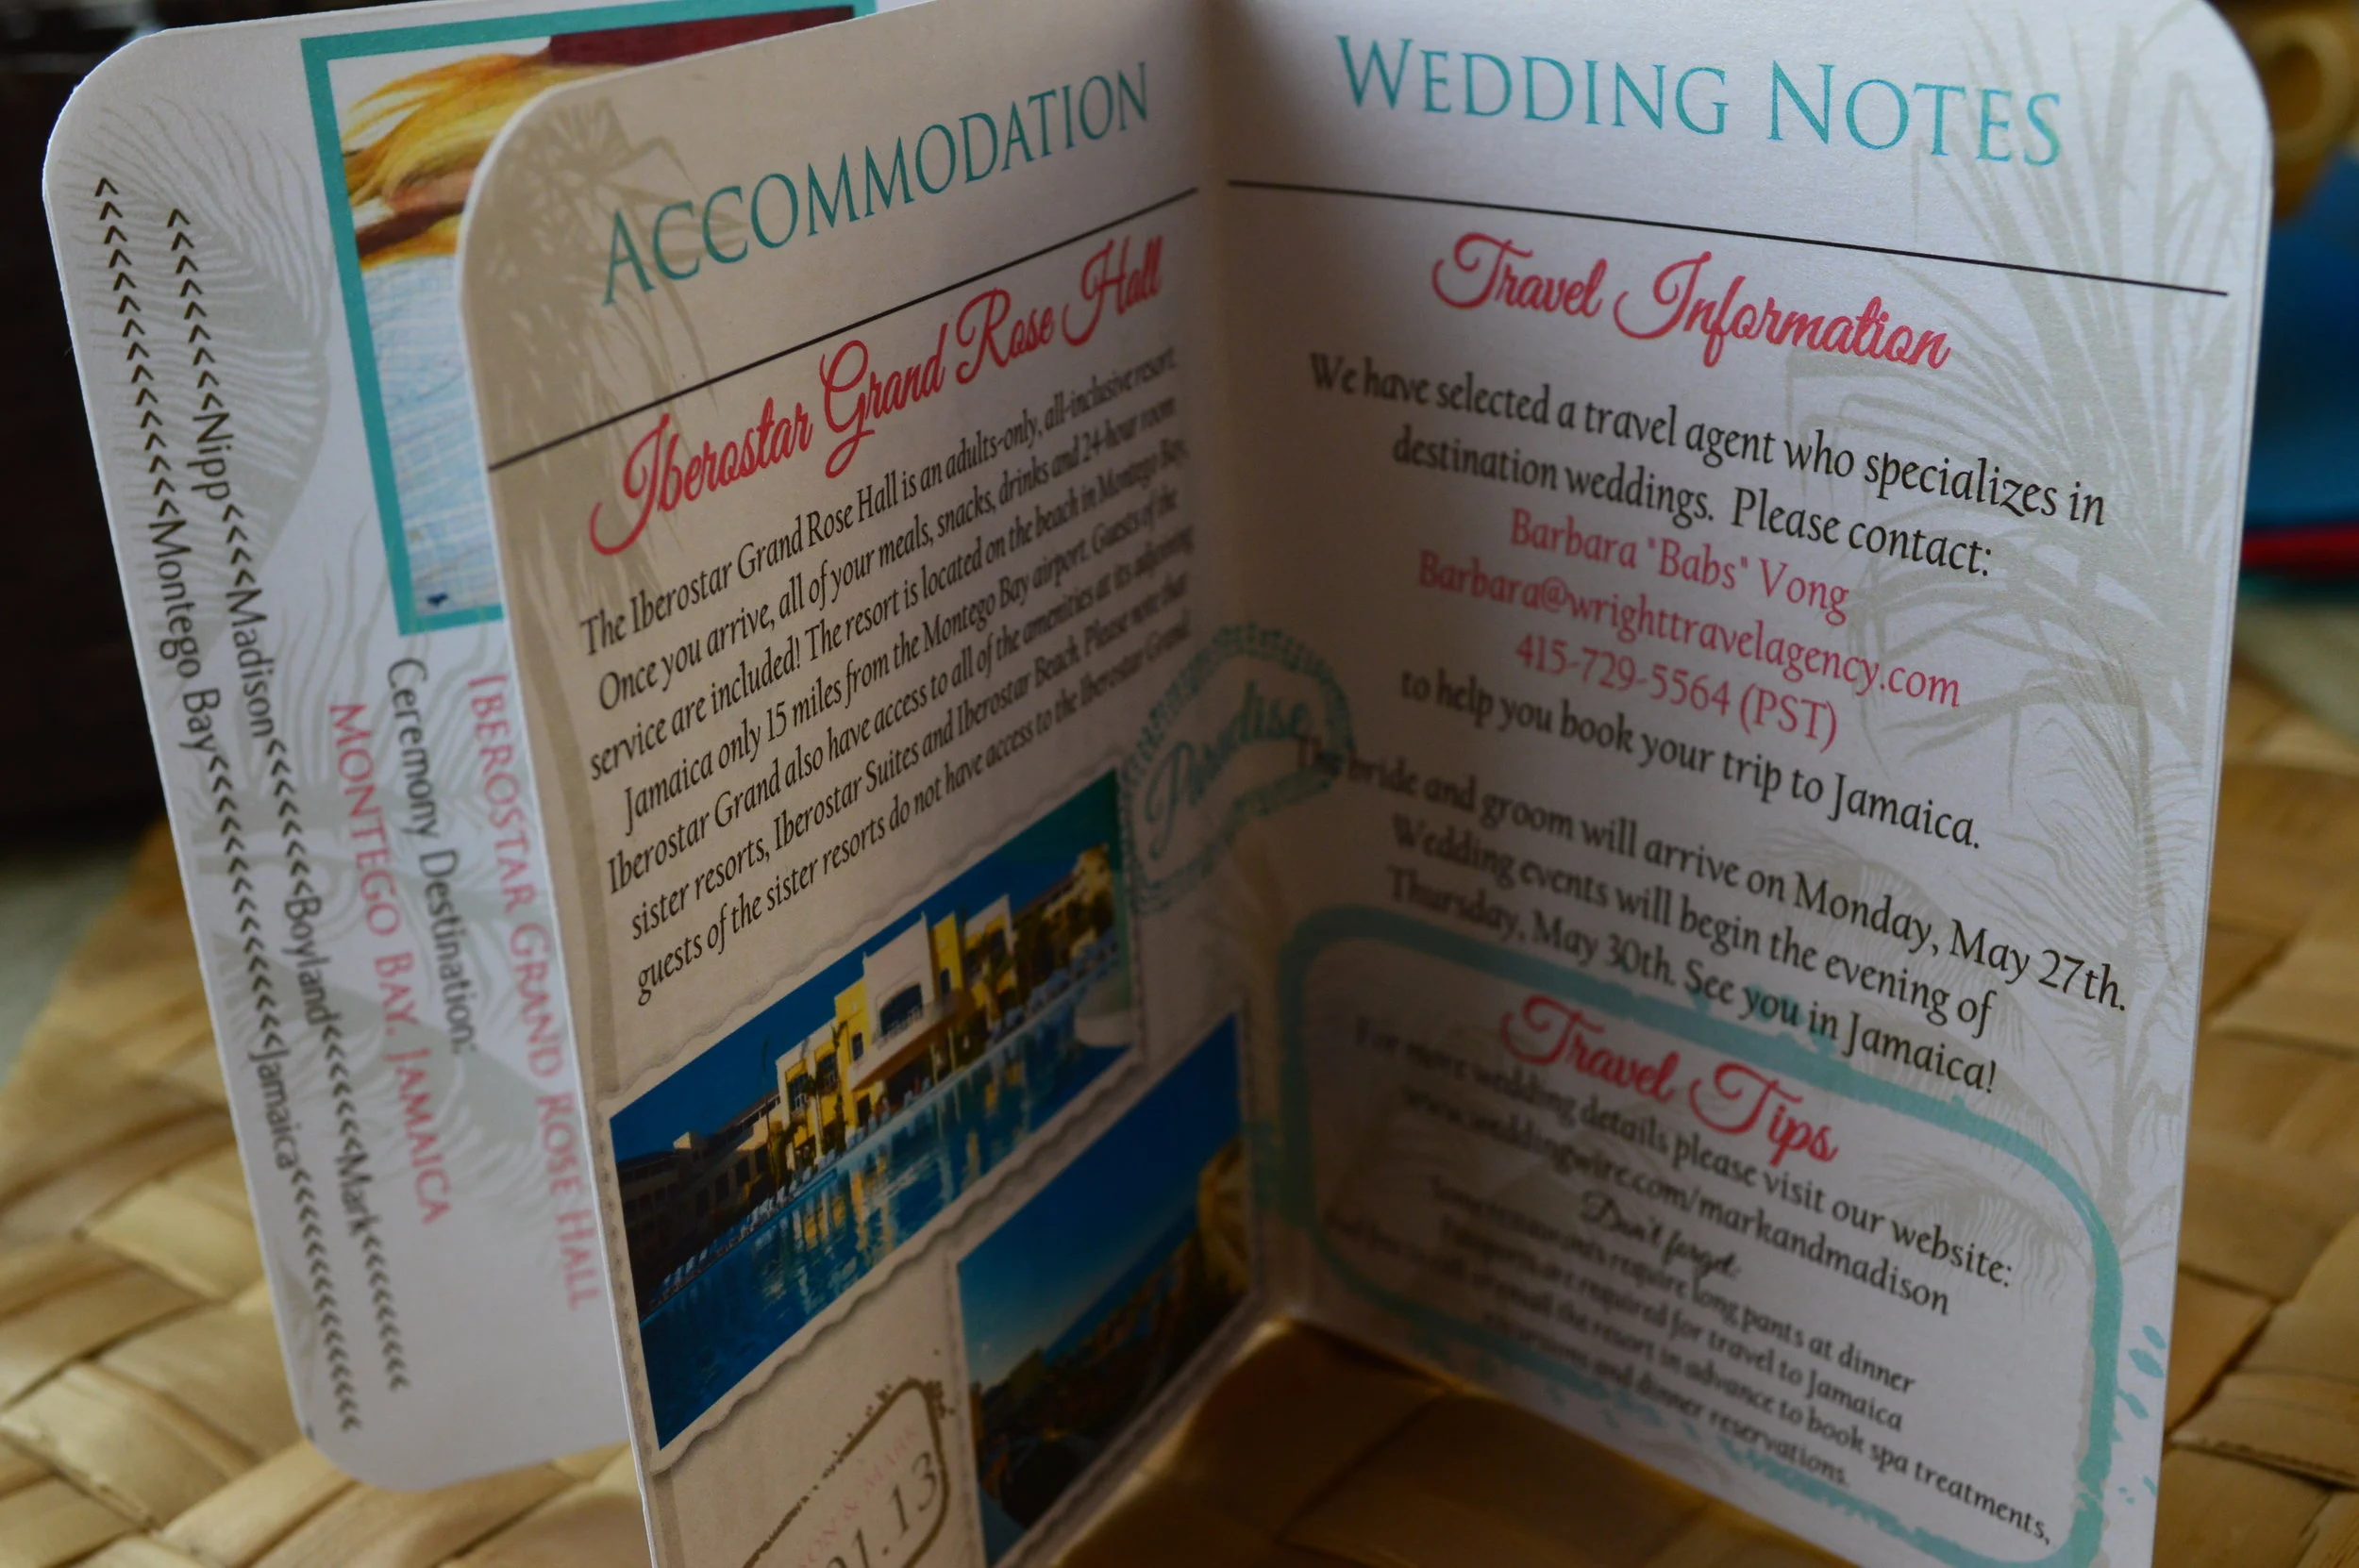 <<<<<<<<<<Nipp<<<<<Madison<<<<<<<<Boyland<<<<<<<Mark<<<<<<<<<
<<<<<<<<<<<<<<<<<Montego Bay<<<<<<<<<<<<<<<Jamaica<<<<<<<<<<<<<<
IBEROSTAR GRAND ROSE HALL
Ceremony Destination:
MONTEGO BAY, JAMAICA
ACCOMMODATION
Iberostar Grand Rose Hall
The Iberostar Grand Rose Hall is an adults-only, all-inclusive resort.
Once you arrive, all of your meals, snacks, drinks and 24-hour room
service are included! The resort is located on the beach in Montego Bay,
Jamaica only 15 miles from the Montego Bay airport. Guests of the
Iberostar Grand also have access to all of the amenities at its adjoining
sister resorts, Iberostar Suites and Iberostar Beach. Please note that
guests of the sister resorts do not have access to the Iberostar Grand.
Paradise
& MARK
01.13
WEDDING NOTES
Travel Information
We have selected a travel agent who specializes in
destination weddings. Please contact:
Barbara "Babs" Vong
Barbara@wrighttravelagency.com
415-729-5564 (PST)
to help you book your trip to Jamaica.
The bride and groom will arrive on Monday, May 27th.
Wedding events will begin the evening of
Thursday, May 30th. See you in Jamaica!
Travel Tips
For more wedding details please visit our website:
www.weddingwire.com/markandmadison
Don't forget:
Some restaurants require long pants at dinner
Passports are required for travel to Jamaica
call or email the resort in advance to book spa treatments,
excursions and dinner reservations.